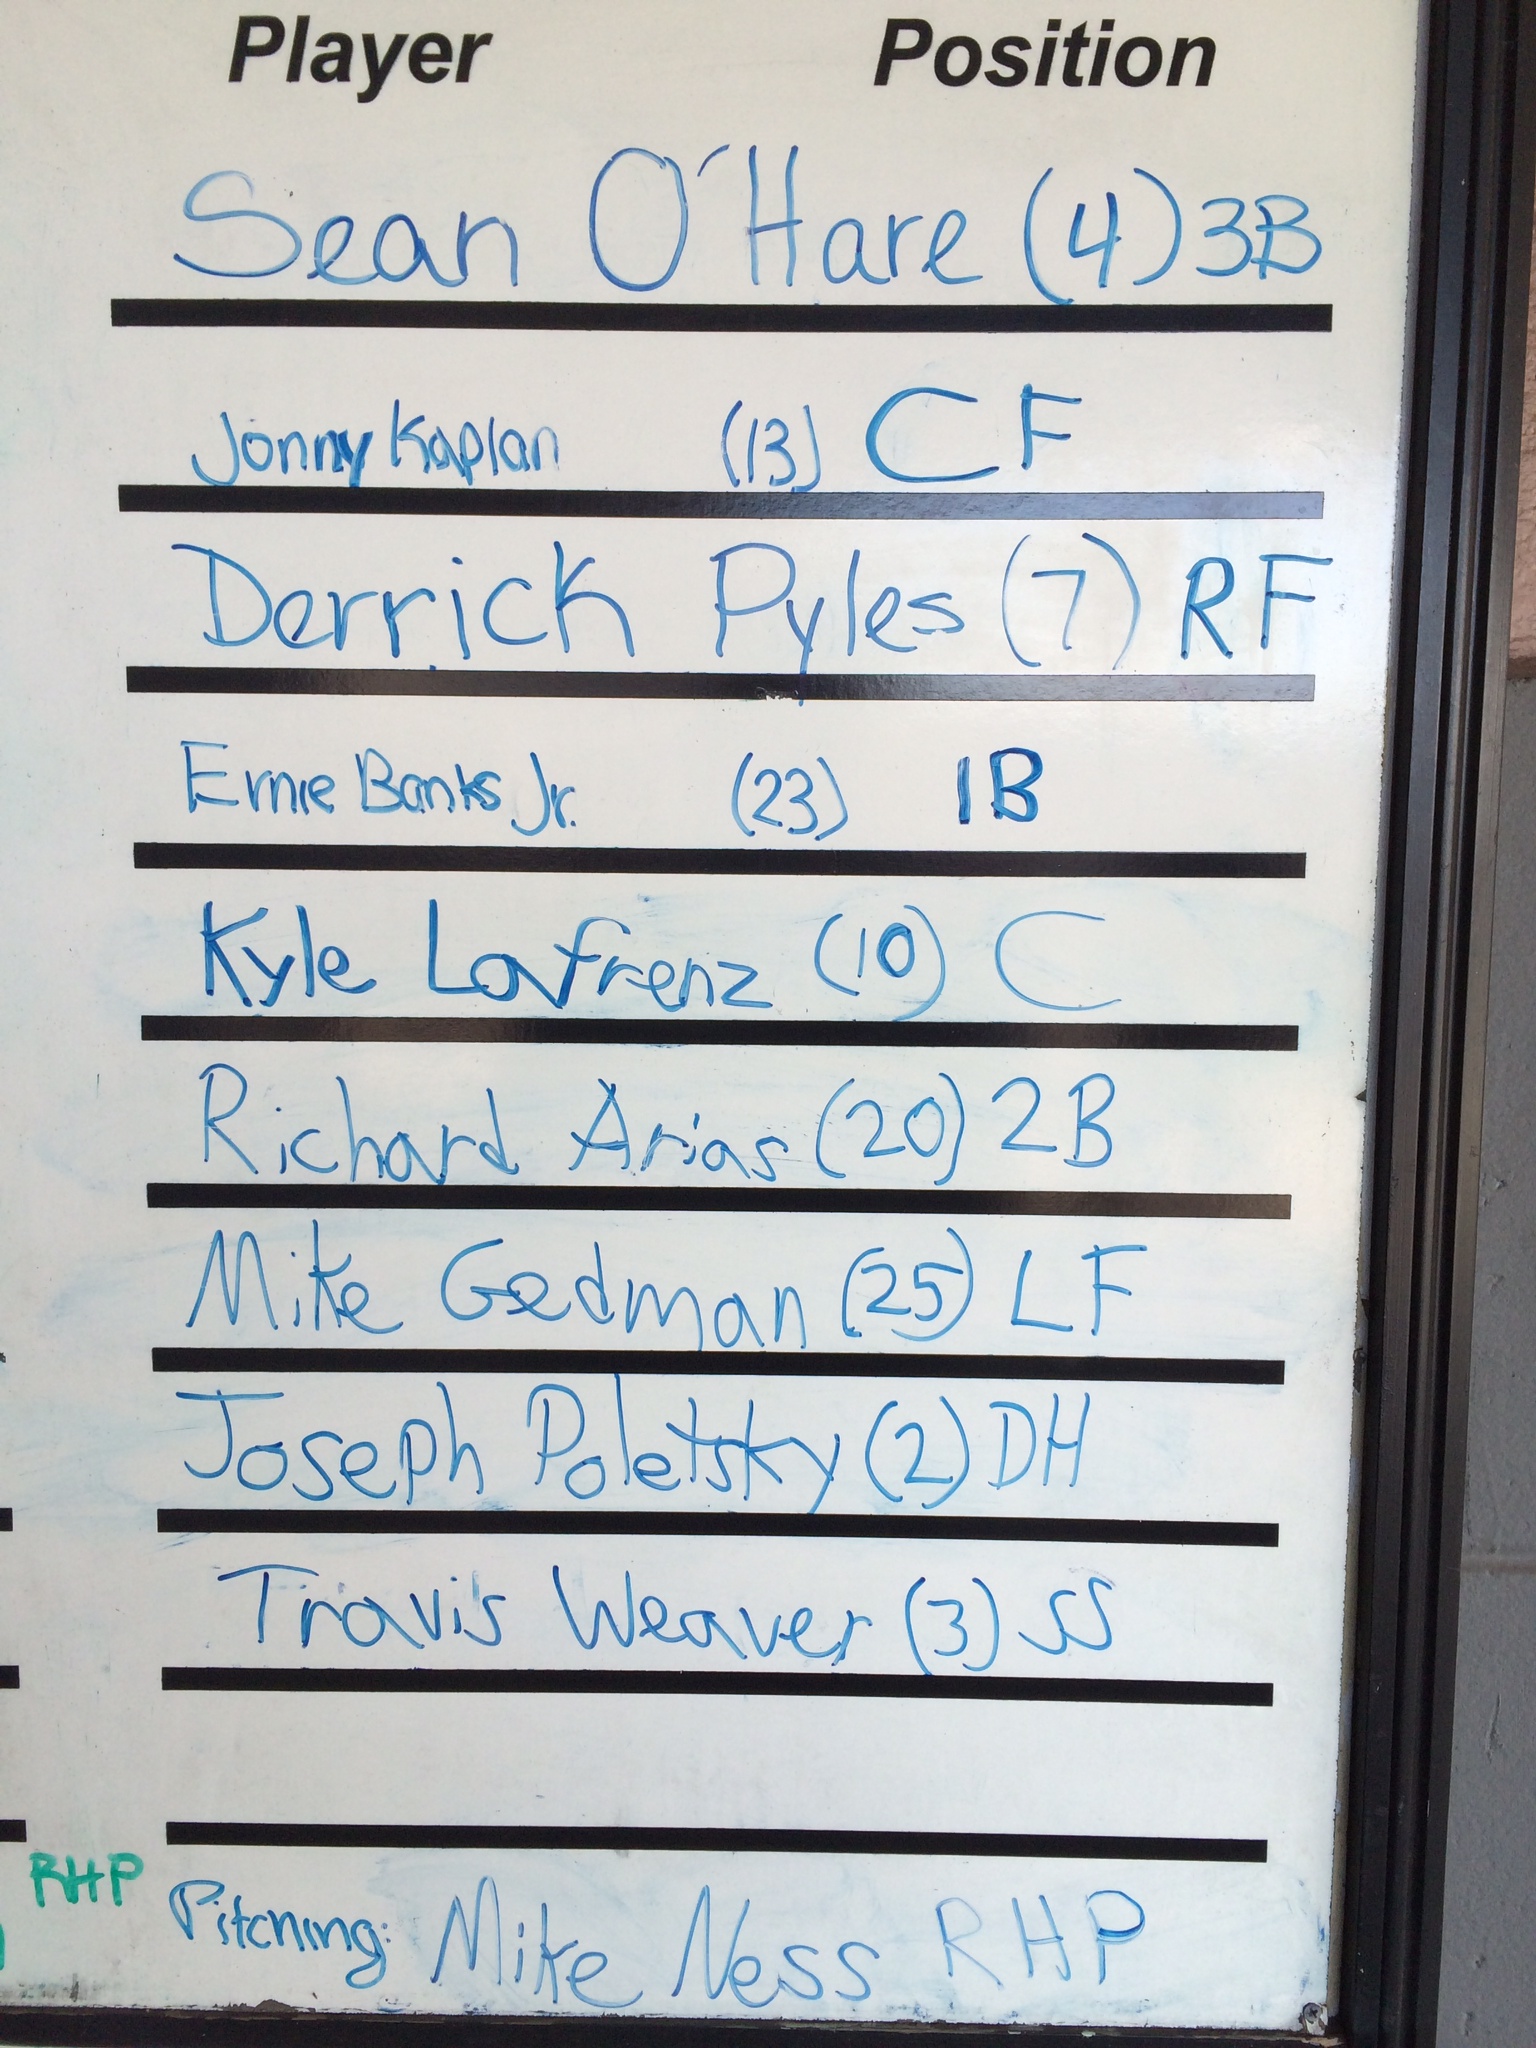 Player Position
Sean O'Hare (4) 3B
Jonny Kaplan (13) CF
Derrick Pyles (7) RF
Ernie Banks Jr. (23) 1B
Kyle Lafrenz (10) C
Richard Arias (20) 2B
Mike Gedman (25) LF
Joseph Poletsky (2) DH
Travis Weaver (3) SS
RHP
Pitching: Mike Ness RHP